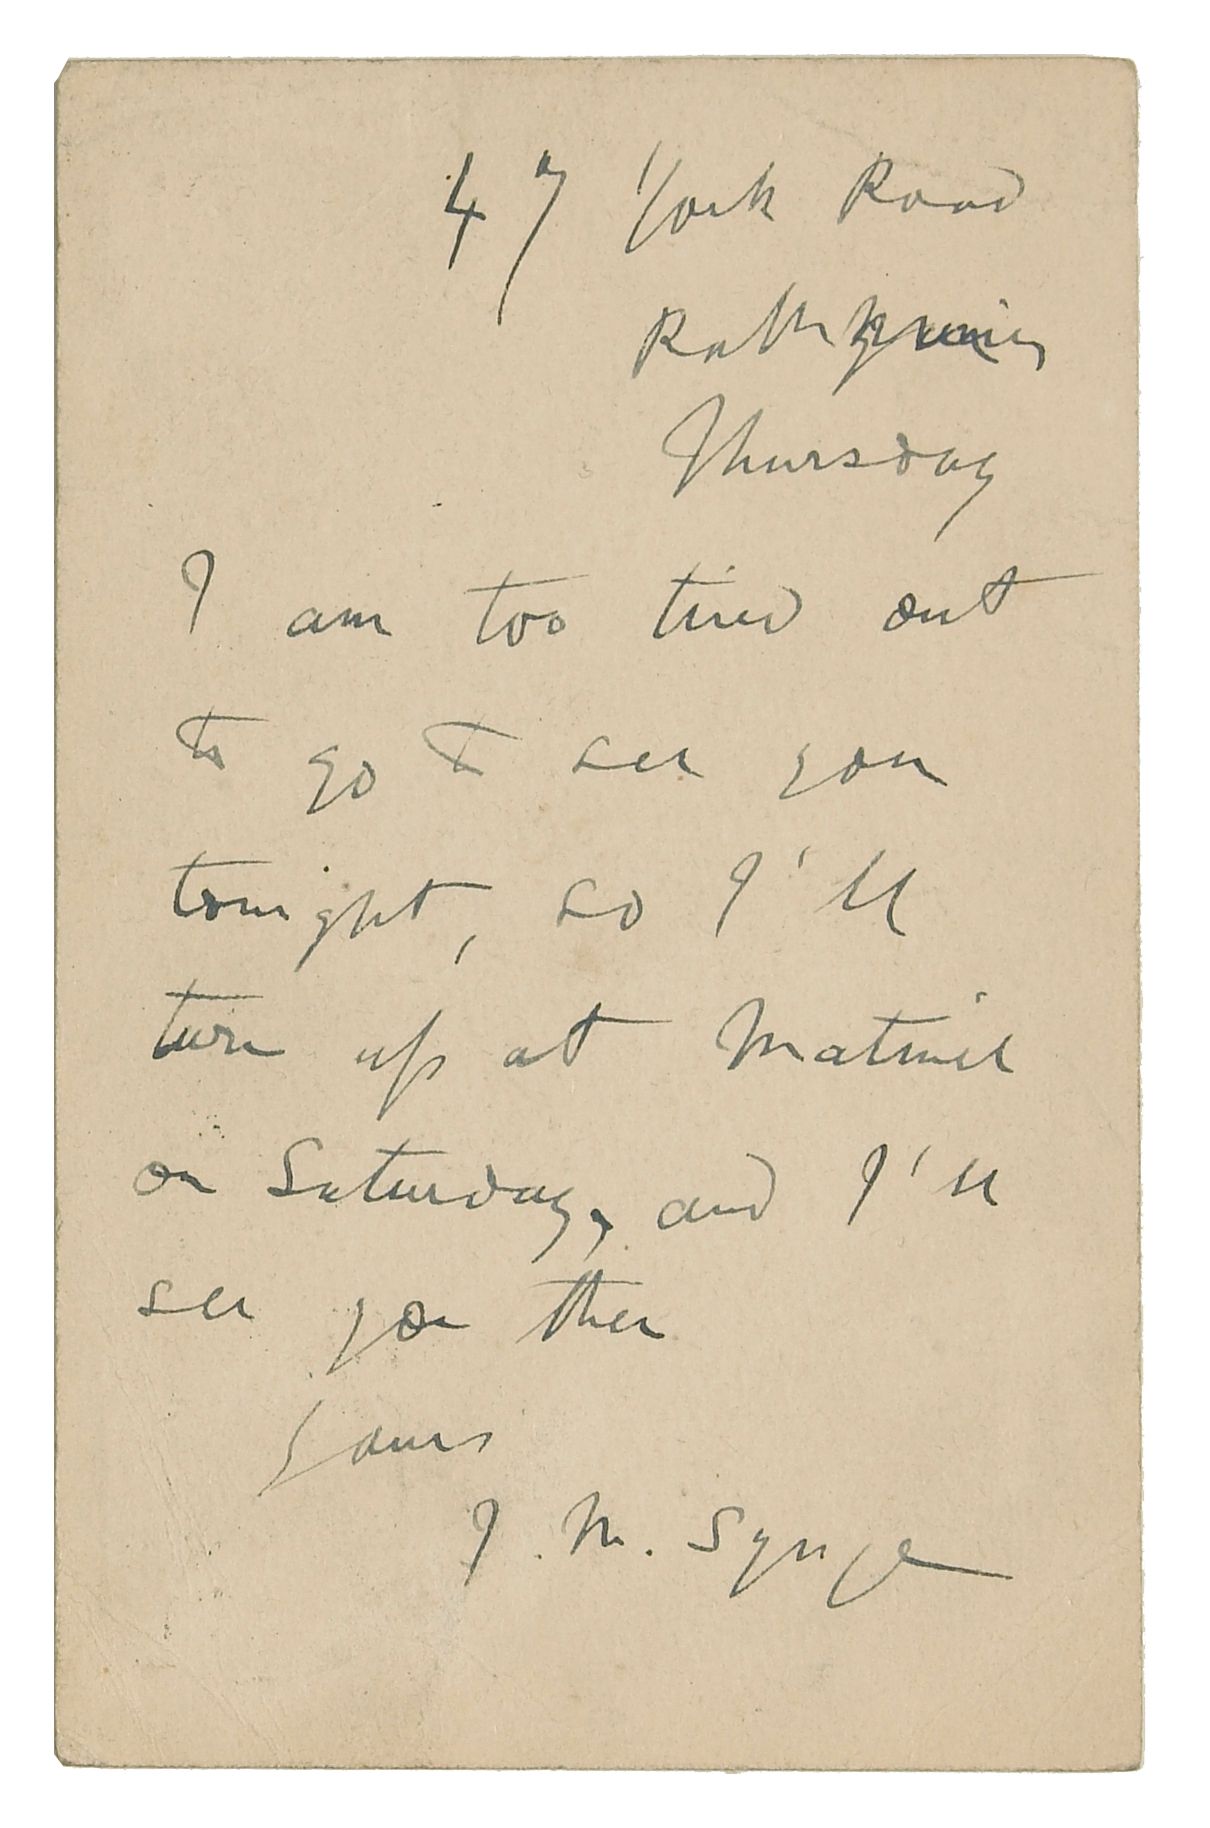 47 York Road
Rathmines
Thursday
I am too tired out
to go to see you
tonight, so I'll
turn up at Matinee
on Saturday, and I'll
see you there
Yours
J. M. Synge